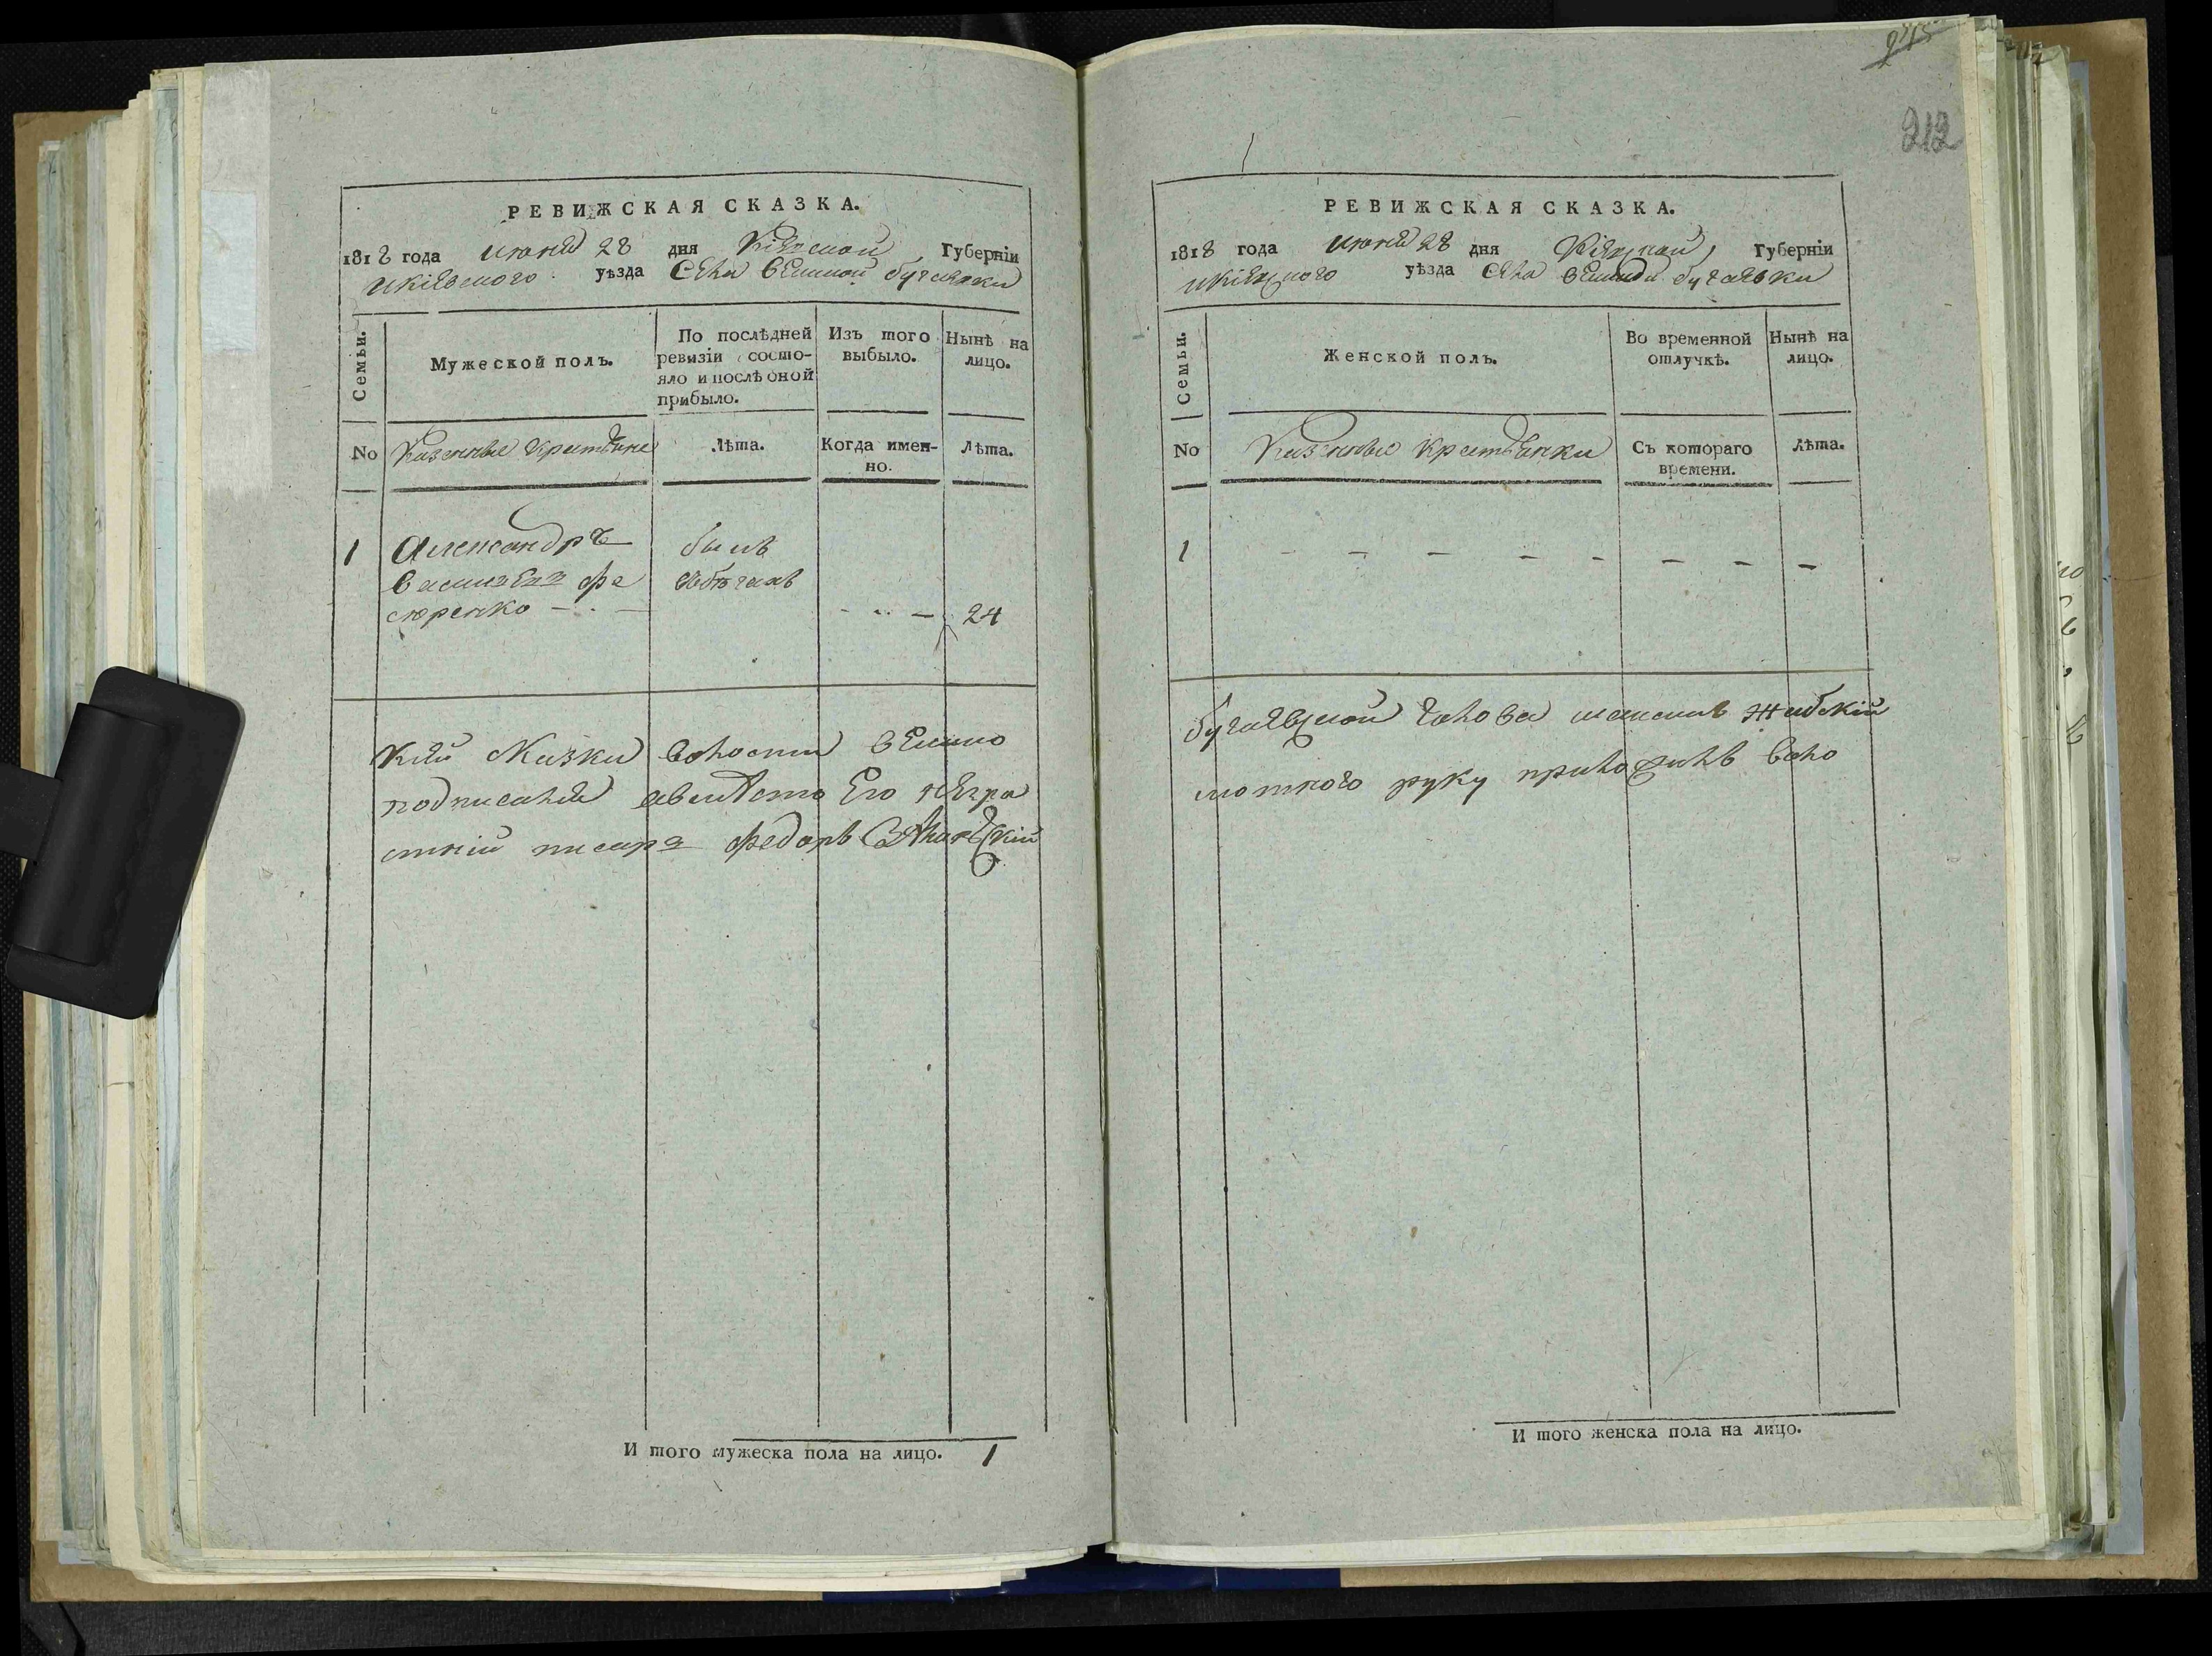 245
212
РЕВИЖСКАЯ СКАЗКА.
1818 года июня 28 дня Кіевской Губерніи
икіевского уѣзда села великой бугаевки
Семьи.
Мужеской полъ.
По послѣдней ревизіи состояло и послѣ оной прибыло.
Изъ того выбыло.
Нынѣ на лицо.
No
Казенные крестьяне
Лѣта.
Когда именно.
Лѣта.
1 Александръ былъ
васильевъ фе
сюренко - . - - .. - 24
сей скизки волости велико
подписаня авместо Его негра
стній писаръ федоръ
И того мужеска пола на лицо. 1
РЕВИЖСКАЯ СКАЗКА.
1818 года июня 28 дня Кіевской Губерніи
икіевского уѣзда села великои бугаевки
Семьи.
Женской полъ.
Во временной отлучкѣ.
Нынѣ на лицо.
No
Казенные крестьянки
Съ котораго времени.
Лѣта.
1 - - - - - - - -
бугаевской голова
мотного руку приложилъ воло
И того женска пола на лицо.